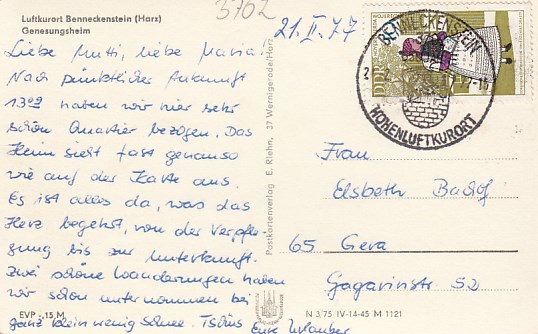 Luftkurort Benneckenstein (Harz)
Genesungsheim
3762
21. II. 77
Liebe Mutti, liebe Maria!
Nach pünktlicher Ankunft
13⁰² haben wir hier sehr
schön Quartier bezogen. Das
Heim sieht fast genauso
wie auf der Karte aus.
Es ist alles da, was das
Herz begehrt, von der Verpfle-
gung bis zur Unterkunft.
Zwei schöne Wanderungen haben
wir schon unternommen bei
ganz klein wenig Schnee. Tschüs Eure Urlauber
EVP -,15 M
Postkartenverlag E. Riehn, 37 Wernigerode/Harz
BENNECKENSTEIN
HÖHENLUFTKURORT
DDR
Frau
Elsbeth
65 Gera
Gagarinstr. 52
N 3,75 IV-14-45 M 1121